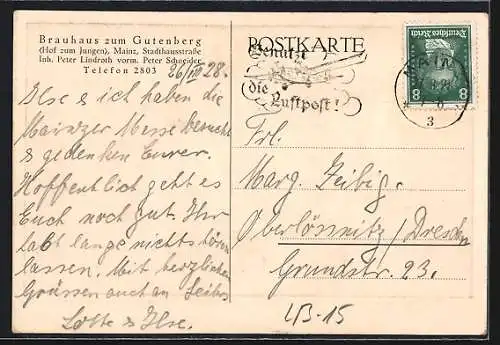 Brauhaus zum Gutenberg
(Hof zum Jungen), Mainz, Stadthausstraße
Inh. Peter Lindroth vorm. Peter Schneider
Telefon 2803
26/VIII 28.
Ilse & ich haben die
Mainzer Messe besucht
& gedenken Eurer.
Hoffentlich geht es
Euch noch gut. Ihr
laßt lange nichts hören
lassen. Mit herzlichen
Grüssen auch an
Lotte & Ilse.
POSTKARTE
Benutzt
die Luftpost!
Deutsches Reich
8 8
MAINZ
3
Frl.
Marg. Zeibig.
Oberlössnitz/Dresden
Grundstr. 23.
4B-15